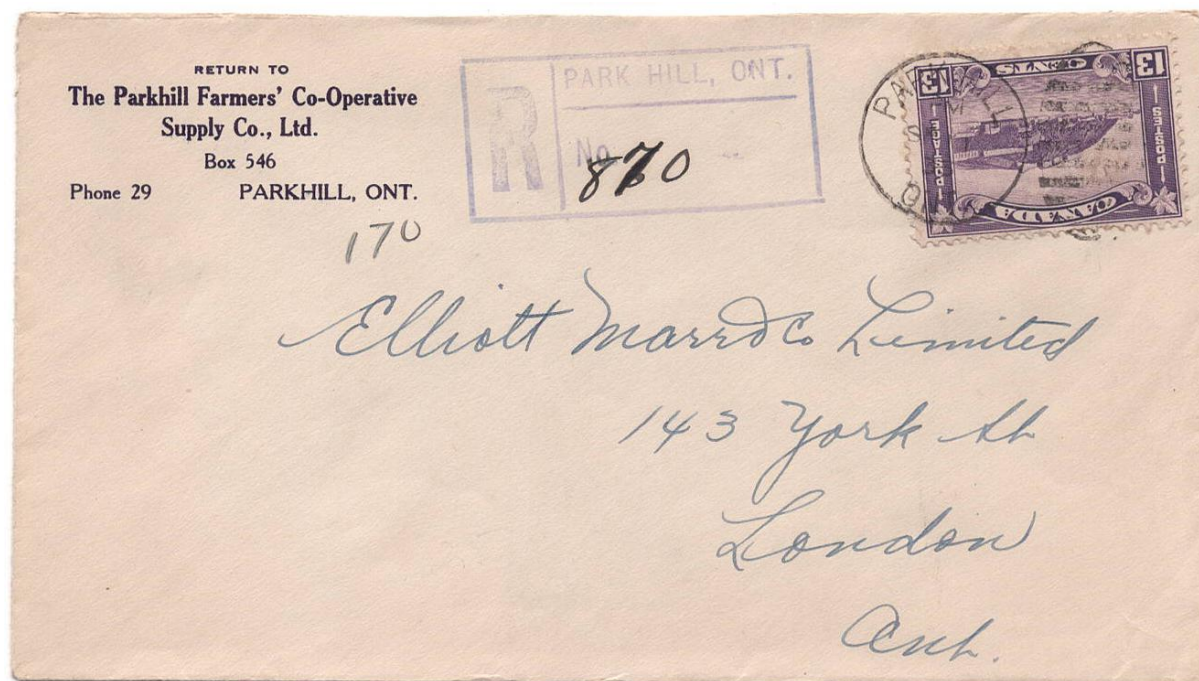 RETURN TO
The Parkhill Farmers' Co-Operative
Supply Co., Ltd.
Box 546
Phone 29 PARKHILL, ONT.
R
PARK HILL, ONT.
No
870
170
13 CENTS 13
POSTAGE
POSTES
CANADA
Elliott Marr & Co Limited
143 York St
London
Ont.